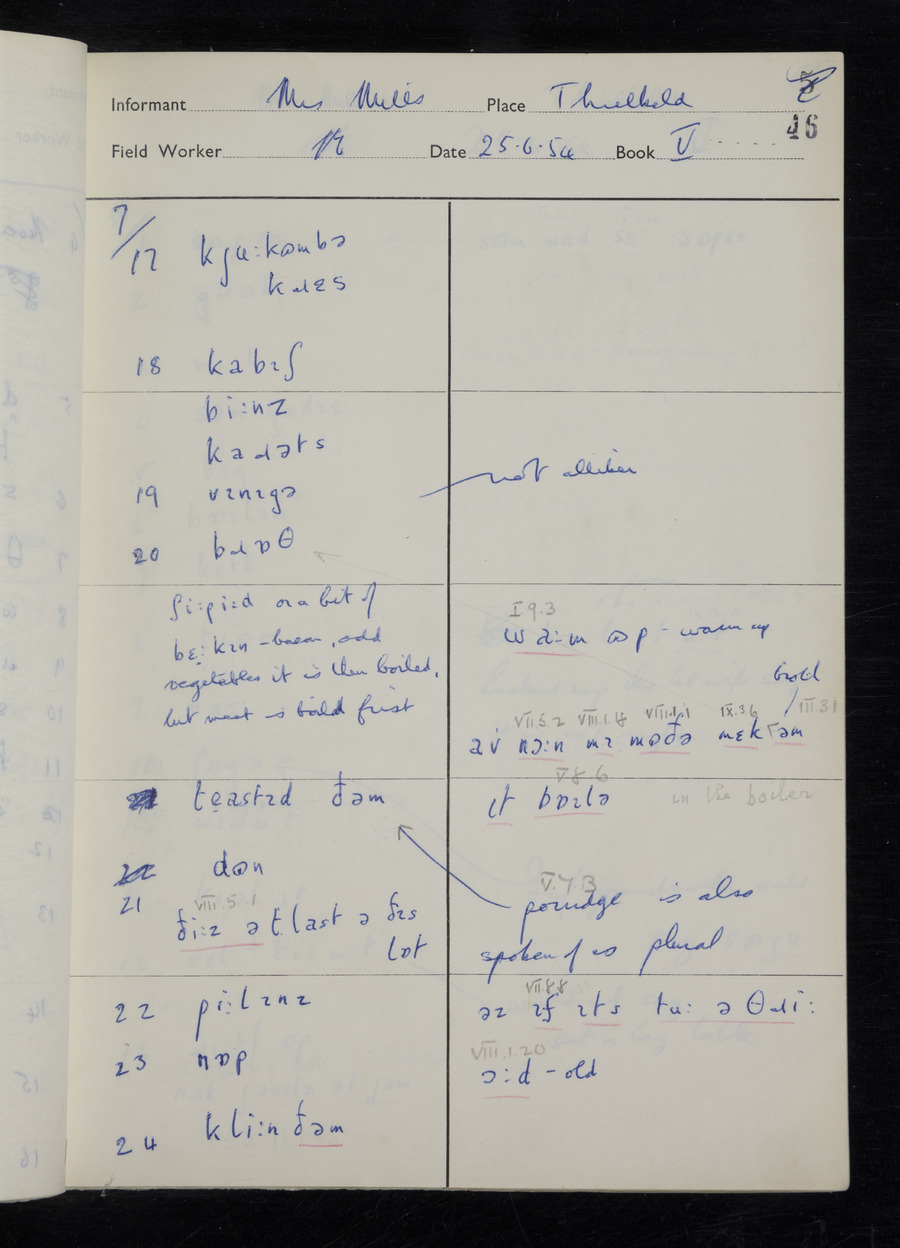 Informant Mrs Mills Place Threlkeld
46
Field Worker Date 25·6·54 Book V
7/
17 kjuːkʊmbə
kɹɛs
18 kabɪʃ
biːnz
kaɹəts
19 vɪnɪgə not
20 bɹɒθ
ʃiːpiːd or a bit of
bɛːkɪn - bacon, add
vegetables it is then boiled,
but meat is boild first
I 9.3
waːm ʊp - warm up
brod
VII.5.2 VIII.1.18 VIII.1.1 IX.3.6 III.3.1
av nɔːn mɪ mʊðə mɛk təm
teastɪd ðəm
V 8 6
ɪt bɒɪlə in the boiler
dʊn
21
VIII.5.1
ðiːz ət last ə ðɪs
lɒt
V.7.3
porridge is also
spoken of as plural
22 piːlɪnz
VII.8.8
əz ɪf ɪts tuː ə θɹiː
23 nɒp
VIII.1.20
ɔːd - old
24 kliːn ðəm